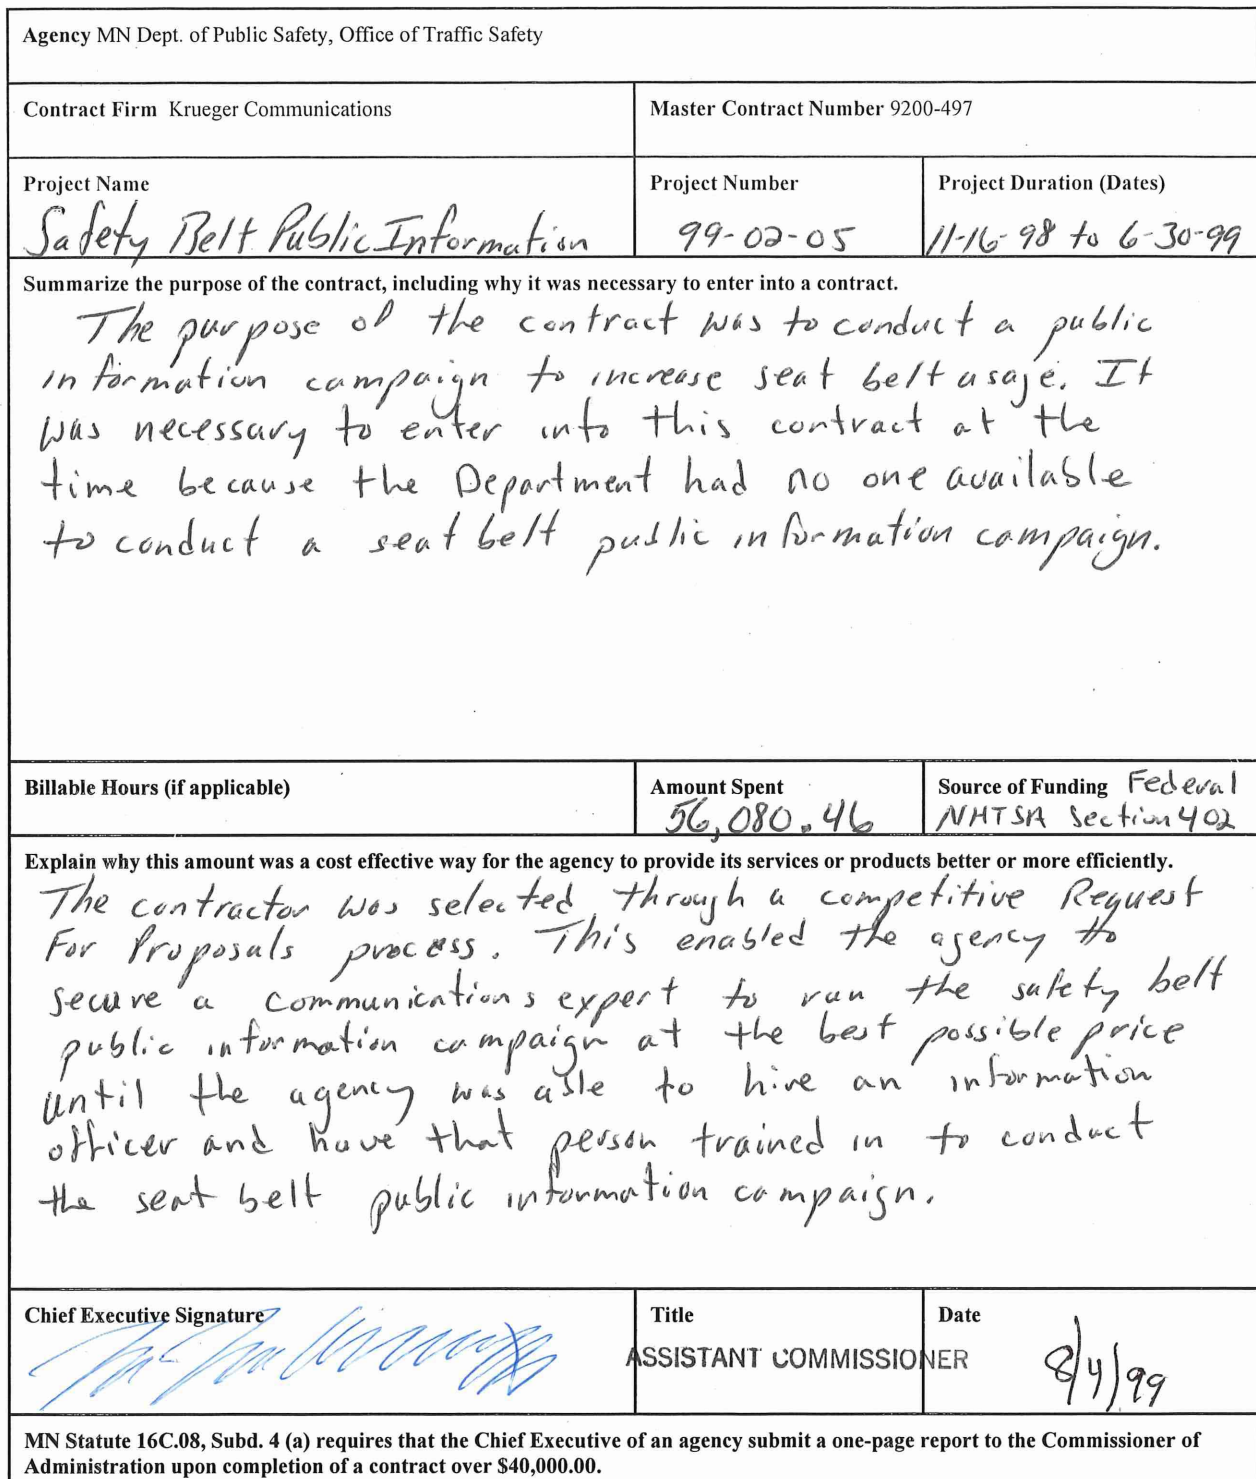 Agency MN Dept. of Public Safety, Office of Traffic Safety
Contract Firm Krueger Communications
Master Contract Number 9200-497
Project Name
Safety Belt Public Information
Project Number
99-02-05
Project Duration (Dates)
11-16-98 to 6-30-99
Summarize the purpose of the contract, including why it was necessary to enter into a contract.
The purpose of the contract was to conduct a public
information campaign to increase seat belt usage. It
was necessary to enter into this contract at the
time because the Department had no one available
to conduct a seat belt public information campaign.
Billable Hours (if applicable)
Amount Spent
56,080.46
Source of Funding Federal
NHTSA Section 402
Explain why this amount was a cost effective way for the agency to provide its services or products better or more efficiently.
The contractor was selected through a competitive Request
For Proposals process. This enabled the agency to
secure a communications expert to run the safety belt
public information campaign at the best possible price
until the agency was able to hire an information
officer and have that person trained in to conduct
the seat belt public information campaign.
Chief Executive Signature
Title
ASSISTANT COMMISSIONER
Date
8/4/99
MN Statute 16C.08, Subd. 4 (a) requires that the Chief Executive of an agency submit a one-page report to the Commissioner of
Administration upon completion of a contract over $40,000.00.